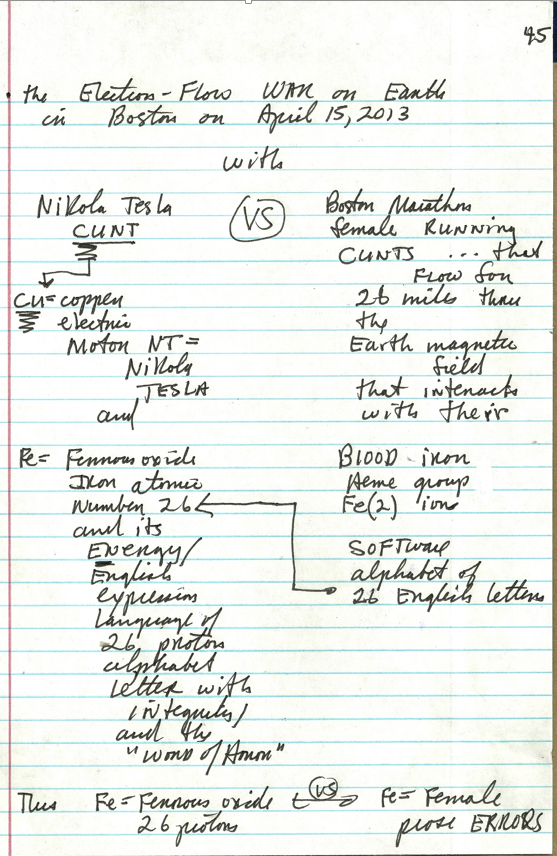 45
• the Electron-Flow WAR on Earth
in Boston on April 15, 2013
with
Nikola Tesla
CUNT
CU = copper
electric
Motor NT =
Nikola
TESLA
and
VS
Boston Marathon
female RUNNING
CUNTS ... that
FLOW for
26 miles thru
the
Earth magnetic
field
that interacts
with their
Fe = Ferrous oxide
Iron atomic
Number 26
and its
ENergy/
English
expression
Language of
26 proton
alphabet
letter with
integrity/
and the
"word of Honor"
BLOOD iron
Heme group
Fe(2) ion
SOFTware
alphabet of
26 English letters
Thus Fe = Ferrous oxide VS Fe = Female
26 protons prose ERRORS